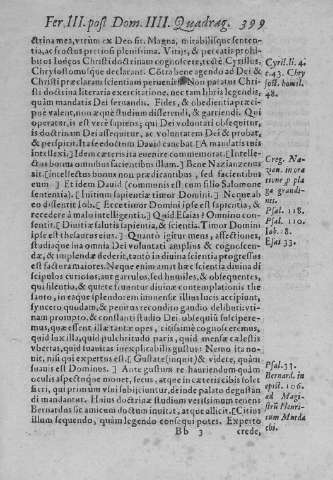 Fer. III. post Dom. IIII. Quadrag. 399
ctrina mea, vtrum ex Deo sit. Magna, mirabilisque senten-
tia, ac fructus pretiosi plenissima. Vitijs, & peccatis prohibi-
tos Iudęos Christi doctrinam cognoscere, testes Cyrillus,
Chrysostomusque declarant. Cōtra bene agendo ad Dei &
Christi præclaram scientiam perueniri. Non paratur Chri-
sti doctrina literaria exercitatione, nec tam libris legendis,
quàm mandatis Dei seruandis. Fides, & obedientia præci-
puè valent, non æquè studium disserendi, & garriendi. Qui
operatur, is est verè sapiens, qui Dei voluntati obsequitur,
is doctrinam Dei assequitur, ac voluntatem Dei & probat,
& perspicit. Ita se edoctum Dauid cancbat [A mandatis tuis
intellexi.] Idem cæteris euenire commemorat. [Intelle-
ctus bonus omnibus facientibus illum.] Bene Nazianzenus
ait [intellectus bonus non prædicantibus, sed facientibus
eum.] Et idem Dauid (communis est cum filio Salomone
sententia). [Initium sapientiæ timor Domini.] Neque ab
eo dissentit Iob. [Ecce timor Domini ipsa est sapientia, &
recedere à malo intelligentia.] Quid Esaias? Omnino con-
sentit. [Diuitiæ salutis sapientia, & scientia. Timor Domini
ipse est thesaurus eius.] Quantò igitur mens, affectiones,
studiaque ina omnia Dei voluntati amplius & cognoscen-
dæ, & implendæ dederit, tantò in diuina scientia progressus
est factura maiores. Neque enim amat hæc scientia diuina di-
scipulos curiosos, aut garrulos, sed humiles, & obsequentes,
qui silentio, & quiete fruuntur diuinæ contemplationis the
sauro, in eaque splendorem immensæ illius lucis accipiunt,
syncero quodam, & penitus recondito gaudio delibuti: vti-
nam prompto, & constanti studio Dei obsequiis fulcipere-
mus, quæ essent illæ tantæ opes, citissimè cognosceremus,
quid lux illa, quid pulchritudo pariat, quid mensæ cælestis
vbertas, quid suauitas inexplicabilis gustus. Nemo ita no-
uit, nisi qui expertus est. [Gustate (inquit) & videte, quàm
suauis est Dominus.] Ante gustum re hauriendum quàm
oculis aspectuque monet, secus, atque in cæteris cibis solet
fieri, qui primum visui subijciuntur, deinde palato degustan
di mandantur. Huius doctrinæ studium verissimum tenens
Bernardus sic amicum doctum inuitat, atque allicit. [Citius
illum sequendo, quàm legendo consequi potes. Experto
Bb 3 crede,
Cyril. li. 4.
c. 43. Chry
sost. homil.
48.
Greg. Na-
zian. in ora
tione p pla
ga grandi-
nis.
Psal. 118.
Psal. 110.
Iob. 28.
Esai 33.
Psal. 33.
Bernard. in
epist. 106.
ad Magi-
strū Henri-
cum Murda
chi.